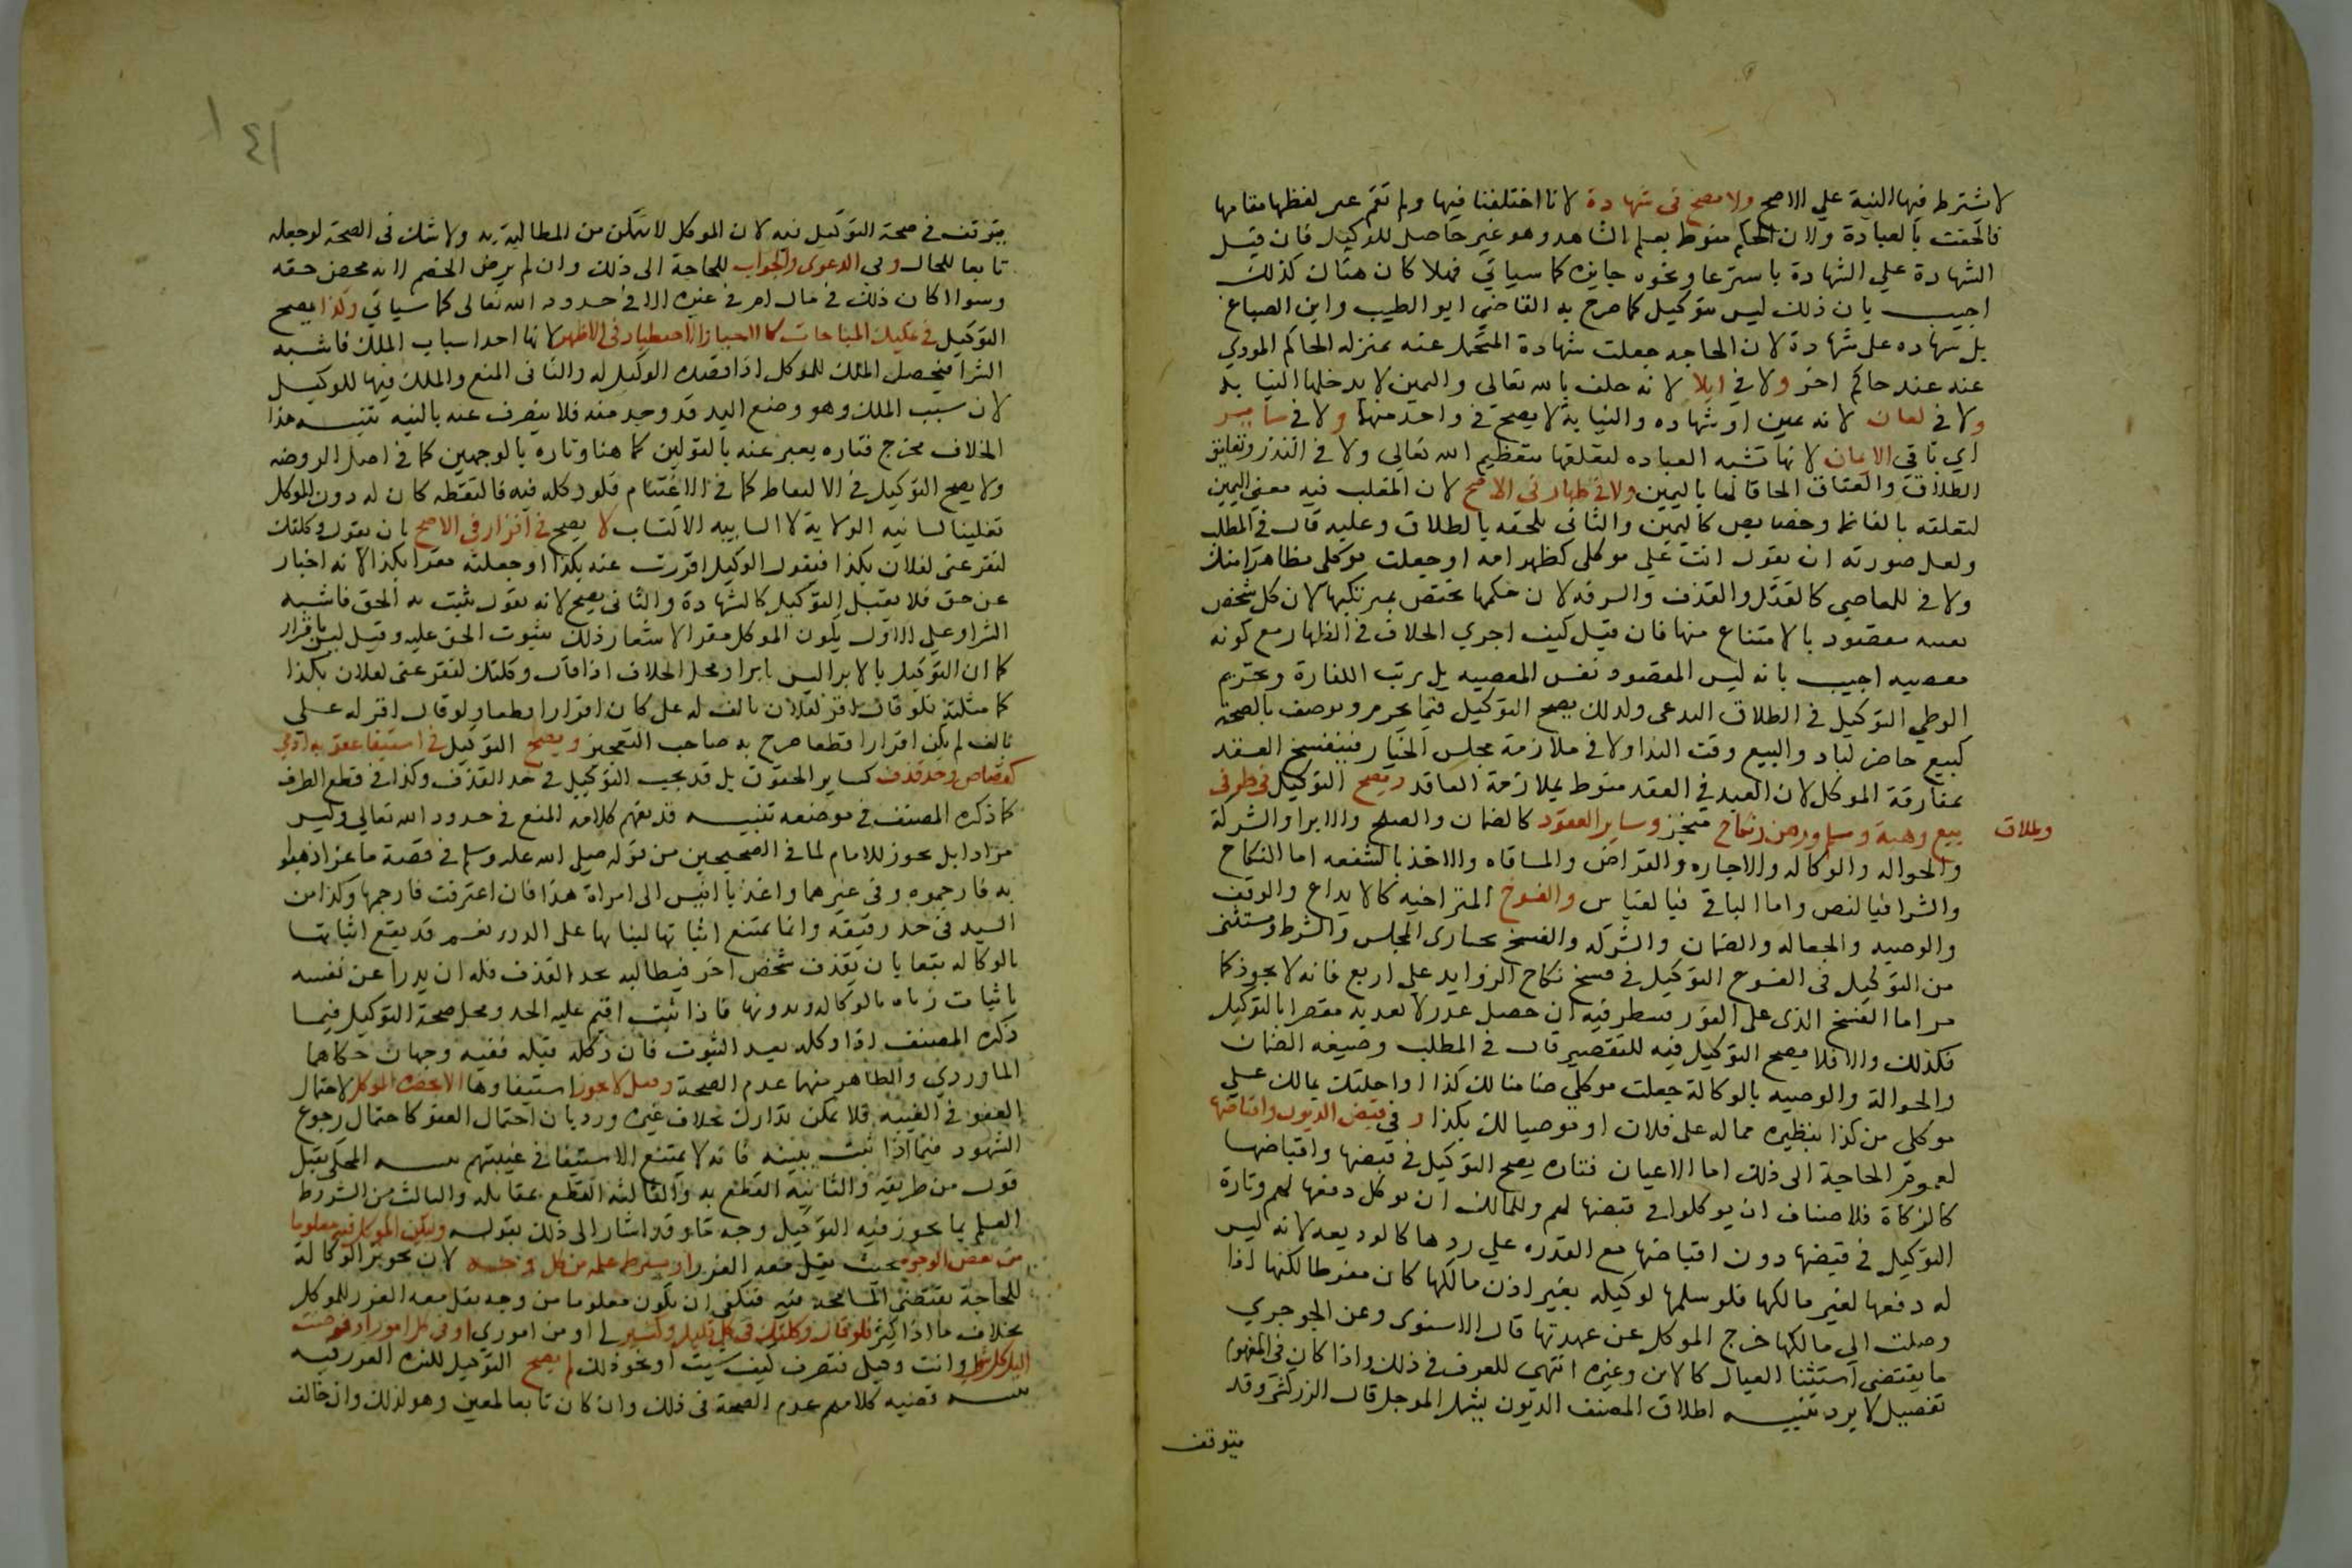 لا شترط فيها النية علي الاصح ولا يصح في شهادة لانا اختلفنا فيها ولم تقم غير لفظها مقامها
فالحقت بالعبادة ولان الحكم منوط بعلم الشاهد وهو غير حاصل للوكيل فان قيل
الشهادة علي الشهادة باسترعا ونحوه جايزه كما سياتي فهلا كان هنا كذلك
اجيب بان ذلك ليس بتوكيل كما صرح به القاضي ابو الطيب وابن الصباغ
بل شهاده علي شهادة لان الحاجه جعلت شهادة المتحمل عنه بمنزله الحاكم المودي
عنه عند حاكم اخر ولا في ايلا لانه حلف بالله تعالى واليمين لا يدخلها النيابه
ولا في لعان لانه يمين او شهاده والنيابة لا يصح في واحد منهما ولا في ساير
اي باقي الايمان لانها تشبه العباده لتعلقها بتعظيم الله تعالي ولا في النذر وتعليق
الطلاق والعتاق الحاقا لها باليمين ولا في ظهار في الاصح لان المغلب فيه معني اليمين
لتعلقه بالفاظ وخصايص كاليمين والثاني يلحقه بالطلاق وعليه قال في المطلب
ولعل صورته ان يقول انت علي موكلي كظهر امه او جعلت موكلي مظاهرا منك
ولا في المعاصي كالقتل والقذف والسرقه لان حكمها مختص بمرتكبها لان كل شخص
بعينه مقصود بالامتناع منها فان قيل كيف اجري الخلاف في الظهار مع كونه
معصيه اجيب بانه ليس المقصود نفس المعصيه بل يرتب الكفارة وتحريم
الوطي التوكيل في الطلاق البدعي ولذلك يصح التوكيل فيما يحرم ويوصف بالصحة
كبيع حاضر لباد والبيع وقت الندا ولا في ملازمة مجلس الخيار فينفسخ العقد
بمفارقة الموكل لان العبد في العقد منوط بملازمة العاقد ويصح التوكيل في طرفي
بيع وهبة وسلم ورهن ونكاح منجز وساير العقود كالضمان والصلح والابرا والشركة
وطلاق
والحواله والوكاله والاجاره والقراض والمساقاه والاخذ بالشفعه اما النكاح
والشرا فبالنص واما الباقي فبالقياس والفسوخ المتراخيه كالايداع والوقف
والوصيه والجعاله والضمان والشركه والفسخ بخيارى المجلس والشرط ويستثنى
من التوكيل في الفسوخ التوكيل في فسخ نكاح الزوايد علي اربع فانه لا يجوز كما
مر اما الفسخ الذي على الفور فينظر فيه ان حصل عذر لا يعد به مقصرا بالتوكيل
فكذلك والا فلا يصح التوكيل فيه للتقصير قال في المطلب وصيغه الضمان
والحوالة والوصيه بالوكالة جعلت موكلي ضامنا لك كذا او احلتك بمالك علي
موكلي من كذا بنظيره مما له على فلان او موصيا لك بكذا و في قبض الديون واقباضها
لعموم الحاجة الى ذلك اما الاعيان فتاره يصح التوكيل في قبضها واقباضها
كالزكاة فللاصناف ان يوكلوا في قبضها لهم وللمالك ان يوكل دفعها لهم وتارة
التوكيل في قبضها دون اقباضها مع القدره علي ردها كالوديعه لانه ليس
له دفعها لغير مالكها فلو سلمها لوكيله بغير اذن مالكها كان مفرطا لكنها اذا
وصلت الي مالكها خرج الموكل عن عهدتها قال الاسنوى وعن الجوجري
ما يقتضي استثنا العيال كالابن وغيره انتهي للعرف في ذلك واذا كان في المفهوم
تفصيل لا يرد تنبيه اطلاق المصنف الديون يشمل الموجل قال الزركشي وقد
يتوقف
٤٦
يتوقف في صحة التوكيل فيه لان الموكل لا يتمكن من المطالبة به ولا شك في الصحة لو جعله
تابعا للحال وفي الدعوى والجواب للحاجة الى ذلك وان لم يرض الخصم لانه محض حقه
وسوا اكان ذلك في مال ام في غيره الا في حدود الله تعالى كما سياتي وكذا يصح
التوكيل في تمليك المباحات كالاحيا والاصطياد في الاظهر لانها احد اسباب الملك فاشبه
الشرا فيحصل الملك للموكل اذا قصده الوكيل له والثاني المنع والملك فيها للوكيل
لان سبب الملك وهو وضع اليد قد وجد منه فلا ينصرف عنه بالنيه تنبيه هذا
الخلاف مخرج فتاره يعبر عنه بالقولين كما هنا وتاره بالوجهين كما في اصل الروضه
ولا يصح التوكيل في الالتقاط كما في الاغتنام فلو وكله فيه فالتقطه كان له دون الموكل
تغليبا لشايبه الولاية لا لشايبه الاكتساب لا يصح في اقرار في الاصح بان يقول وكلتك
لتقر عني لفلان بكذا فيقول الوكيل اقررت عنه بكذا او جعلته مقرا بكذا لانه اخبار
عن حق فلا يقبل التوكيل كالشهادة والثاني يصح لانه قول يثبت به الحق فاشبه
الشرا وعلي الاول يكون الموكل مقرا لاشعار ذلك بثبوت الحق عليه وقيل ليس باقرار
كما ان التوكيل بالابرا ليس بابرا ومحل الخلاف اذا قال وكلتك لتقر عني لفلان بكذا
كما مثلته فلو قال اقر لفلان بالف له على كان اقرارا قطعا ولو قال اقر له علي
بالف لم يكن اقرارا قطعا صرح به صاحب التعجيز ويصح التوكيل في استيفا عقوبه ادمي
كقصاص وحد قذف كساير الحقوق بل قد يجب التوكيل في حد القذف وكذا في قطع الطرف
كما ذكره المصنف في موضعه تنبيه قد يفهم كلامه المنع في حدود الله تعالي وليس
مرادا بل يجوز للامام لما في الصحيحين من قوله صلى الله عليه وسلم في قصة ماعز اذهبوا
به فارجموه وفي غيرهما واغد يا انيس الى امراة هذا فان اعترفت فارجمها وكذا من
السيد في حد رقيقه وانما يمتنع اثباتها لبنايها على الدرر نعم قد يقع اثباتها
بالوكاله تبعا بان يقذف شخص اخر فيطالبه بحد القذف فله ان يدرا عن نفسه
باثبات زناه بالوكاله وبدونها فاذا ثبت اقيم عليه الحد ومحل صحة التوكيل فيما
ذكره المصنف اذا وكله بعد الثبوت فان وكله قبله ففيه وجهان حكاهما
الماوردي والظاهر منهما عدم الصحة وقيل لا يجوز استيفاوها الا بحضرة الموكل لاحتمال
العفو في الغيبه فلا يمكن تداركه بخلاف غيره ورد بان احتمال العفو كاحتمال رجوع
الشهود فيما اذا ثبت ببينه فانه لا يمتنع الاستيفا في غيبتهم
قول من طريقه والثانيه القطع به والثالثه القطع بمقابله والثالث من الشروط
العلم بما يجوز فيه التوكيل وجه ما وقد اشار الى ذلك بقوله وليكن الموكل فيه معلوما
من بعض الوجوه بحيث يقل معه الغرر ولا يشترط علمه من كل وجه لان تجويز الوكالة
للحاجة يقتضي المسامحة فيه فيكفي ان يكون معلوما من وجه يقل معه الغرر للموكل
بخلاف ما اذا كثر فلو قال وكلتك في كل قليل وكثير لي او من اموري او في كل اموري او فوضت
اليك كل شي او انت وكيلي فتصرف كيف شيت او نحو ذلك لم يصح التوكيل لكثرة الغرر فيه
تنبيه قضيه كلامهم عدم الصحة في ذلك وان كان تابعا لمعين وهو لذلك وان خالف